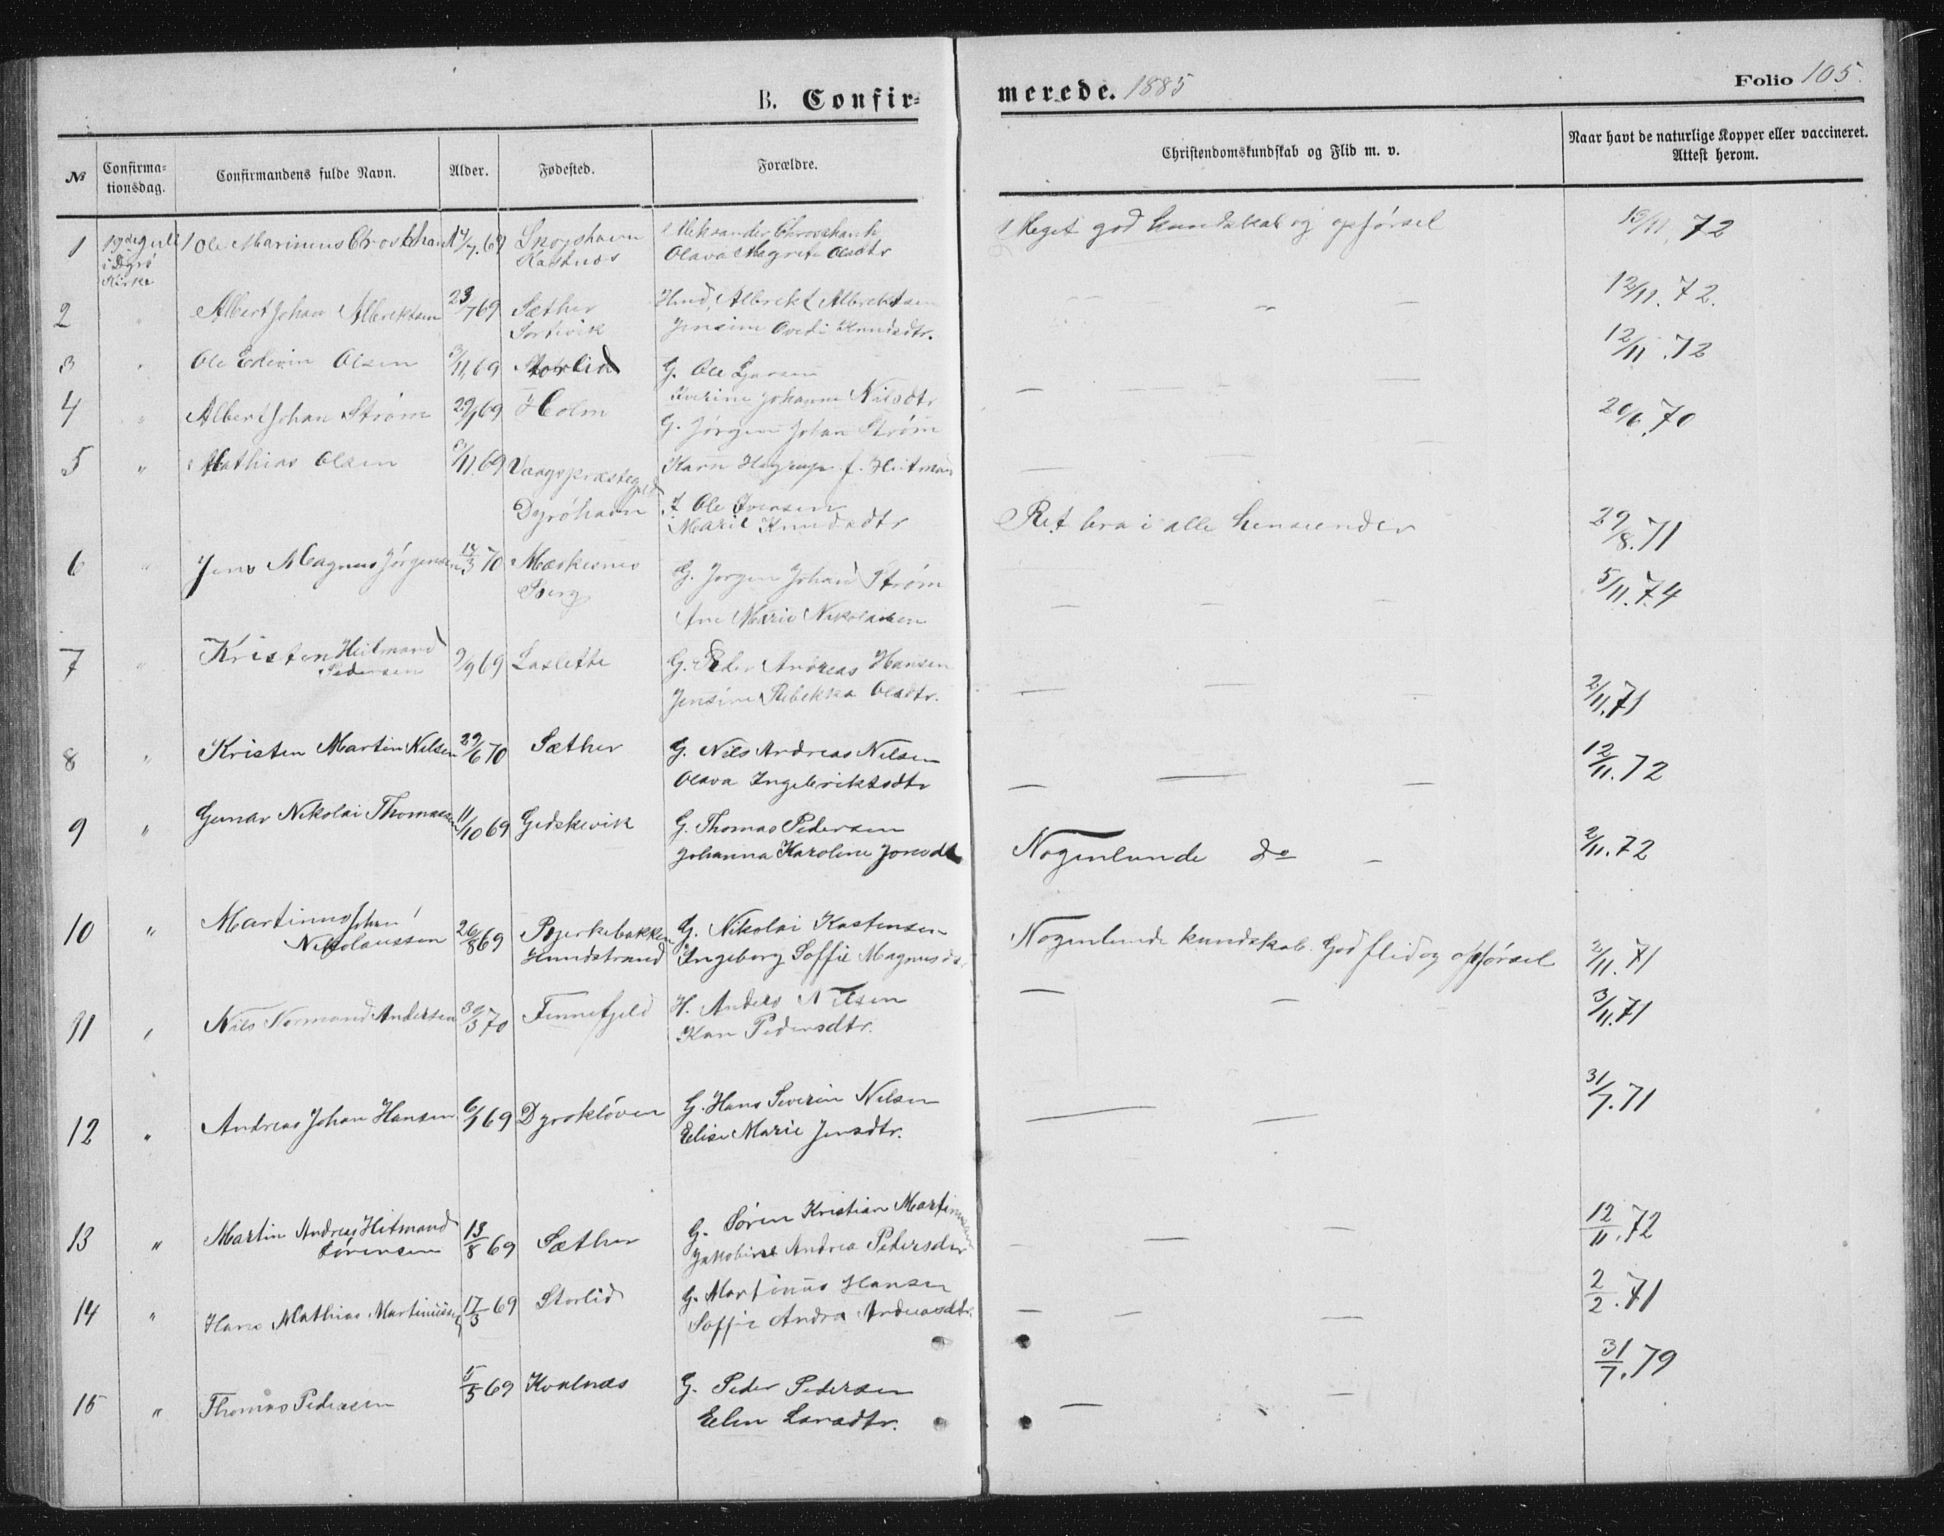 B. Confir-
merede. 1885
Folio 105.
№
Confirma-
tionsdag.
Confirmandens fulde Navn.
Alder.
Fødested.
Forældre.
Christendomskundskab og Flid m. v.
Naar havt de naturlige Kopper eller vaccineret.
Attest herom.
1 Ole Marinius 69
Aleksander
Olava Magrete Olsdtr
Meget god kundskab og opførsel
/11. 72
Kirke
2 Albert Johan Albrektsen 23/7 69 Sæther Hmd. Albrekt Albrektsen
Sørvik Jensine Knudsdtr.
— — — 12/11. 72.
3 " Ole Edevin Olsen 3/11 69 Storlid G. Ole
Johanne Nilsdtr
— — — 12/11. 72
4 " Albert Johan Strøm 29/1 69 Holm G. Jørgen Johan Strøm
Karn f. Hitman
— — 20/6. 70
5 " Mathias Olsen 3/11. 69 Vaagspræstegjeld
Dyröhavn Ole
Marie Knudsdtr
Ret bra i alle henseender 29/8. 71
6 " Jens Magnus Jørgensen 3 70
Berg
G. Jørgen Johan Strøm
Ane Marie Nikolaisen
— — — 5/11. 74
7 " Kristen Heitmand
Pedersen 9/9 69 Laslette G. Peder Andreas Hansen
Jensine Rebekka Olsdtr.
— — — 2/11. 71
8 " Kristen Martin Nilsen 29/6 70 Sæther G. Nils Andreas Nilsen
Olava Ingebriktsdtr
— — — 12/11. 72
9 " Gunar Nikolai Thomassen 11/10 69 Gidskevik G. Thomas Pedersen
Johanna Karoline Jonsdt
Nogenlunde do — 2/11. 72
10 " Martinus Johan
Nikolaussen 26/8 69 Bjerkebakken
Hundstrand
G. Nikolai Kastensen
Ingeborg Soffie Magnusd.
Nogenlunde kundskab. God flid og opførsel 2/11. 71
11 " Nils Normand Andersen 30/3 70 Finnefjeld H. Anders Nilsen
Kan Pedersdtr.
— — 3/11. 71
12 " Andreas Johan Hansen 6/1 69 Dyrokløven G. Hans Severin Nilsen
Elise Marie Jensdtr.
— — 31/7. 71
13 " Martin Andreas Hitmand
Sørensen 13/8 69 Sæther G. Søren Kristian Martinussen
Jakobine Andrea Pedersdtr
— — — 12/11. 72
14 " Hans Mathias Martinussen 17/3 69 Storlid G. Martinus Hansen
Soffie Andra Andreasdtr.
— — — 2/2. 71
15 " Thomas Pedersen 5/5 69 Kvalnæs G. Peder Pedersen
Elen Larsdtr.
— — 31/7. 79